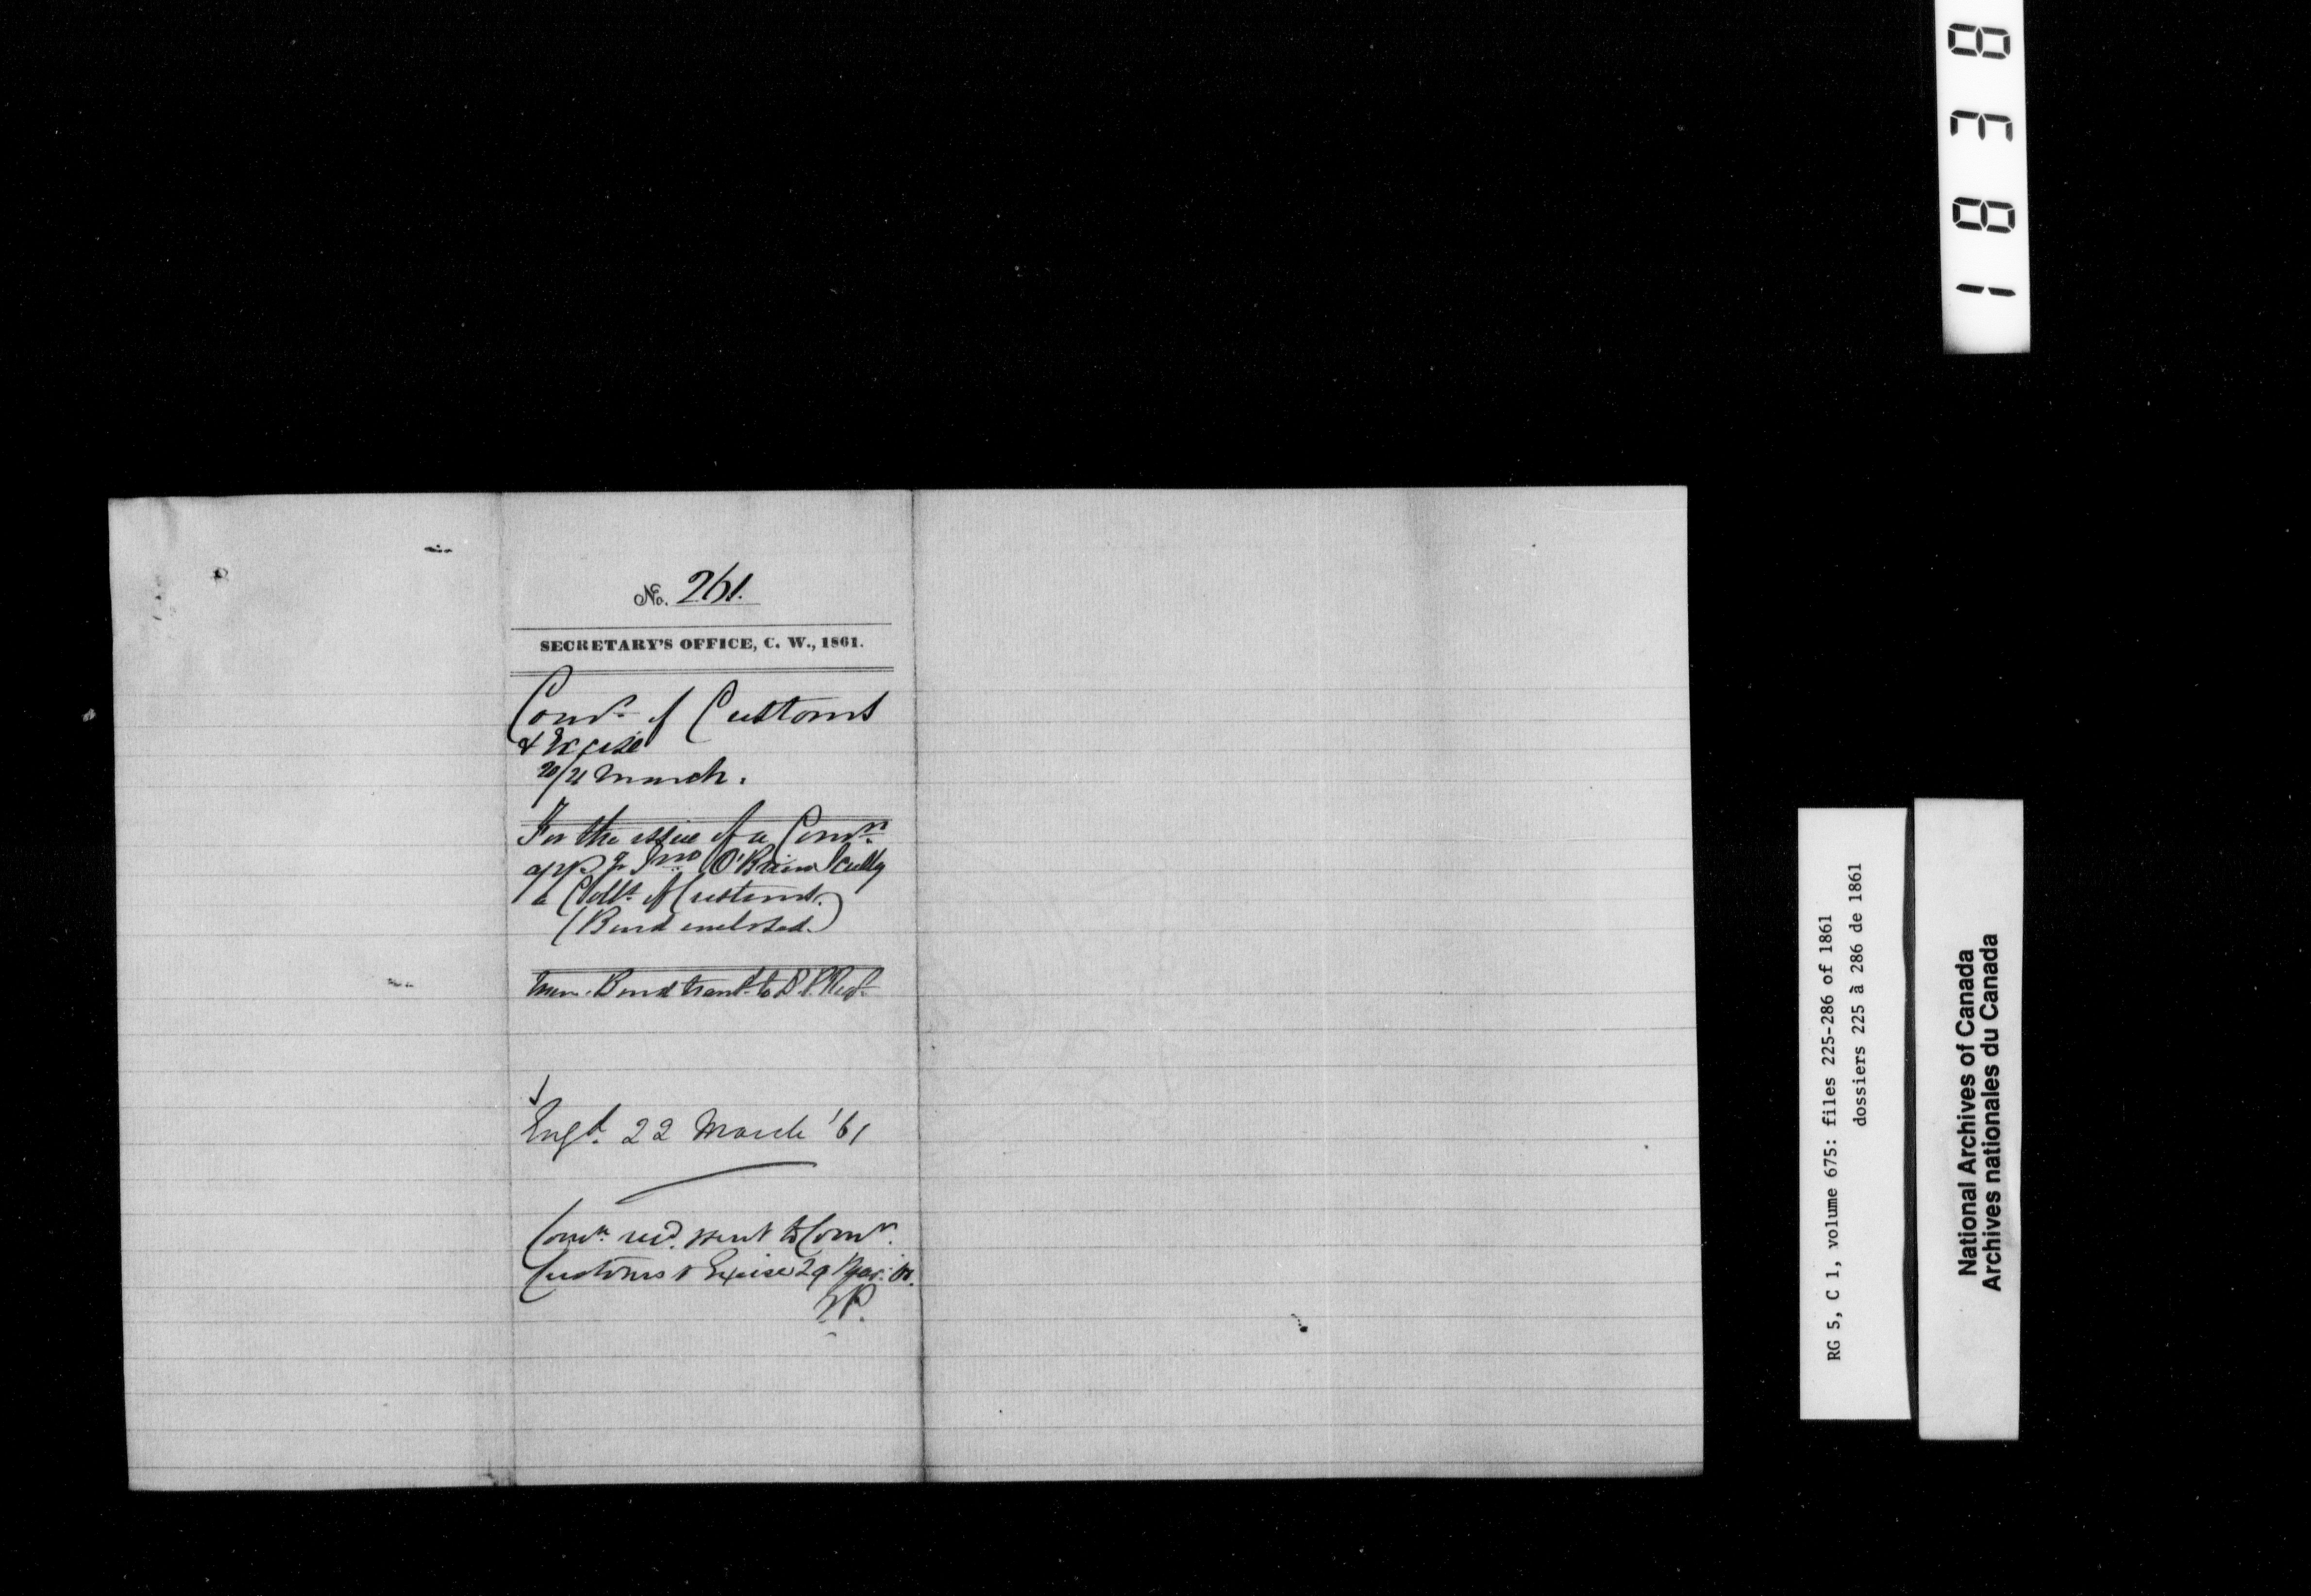 No. 261.
SECRETARY'S OFFICE, C. W., 1861.
Comr. of Customs
& Excise
20/21 March.
For the issue of a Comn.
appg. Jno. O'Brien Scully
a Collr. of Customs.
(Bond enclosed.)
Mem. Bond transd. to D. P. Regr.
Engd. 22 March '61
Comn. recd. & sent to Comr.
Customs & Excise 29 Mar: 61.
1838
RG 5, C 1, volume 675: files 225-286 of 1861
dossiers 225 à 286 de 1861
National Archives of Canada
Archives nationales du Canada